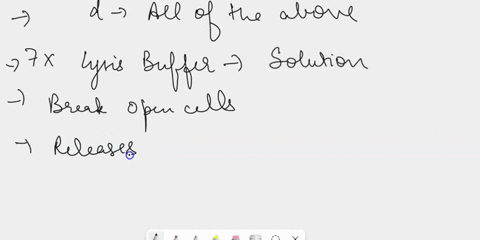 → d → All of the above
→ 7x Lysis Buffer → Solution
→ Break open cells
→ Releases